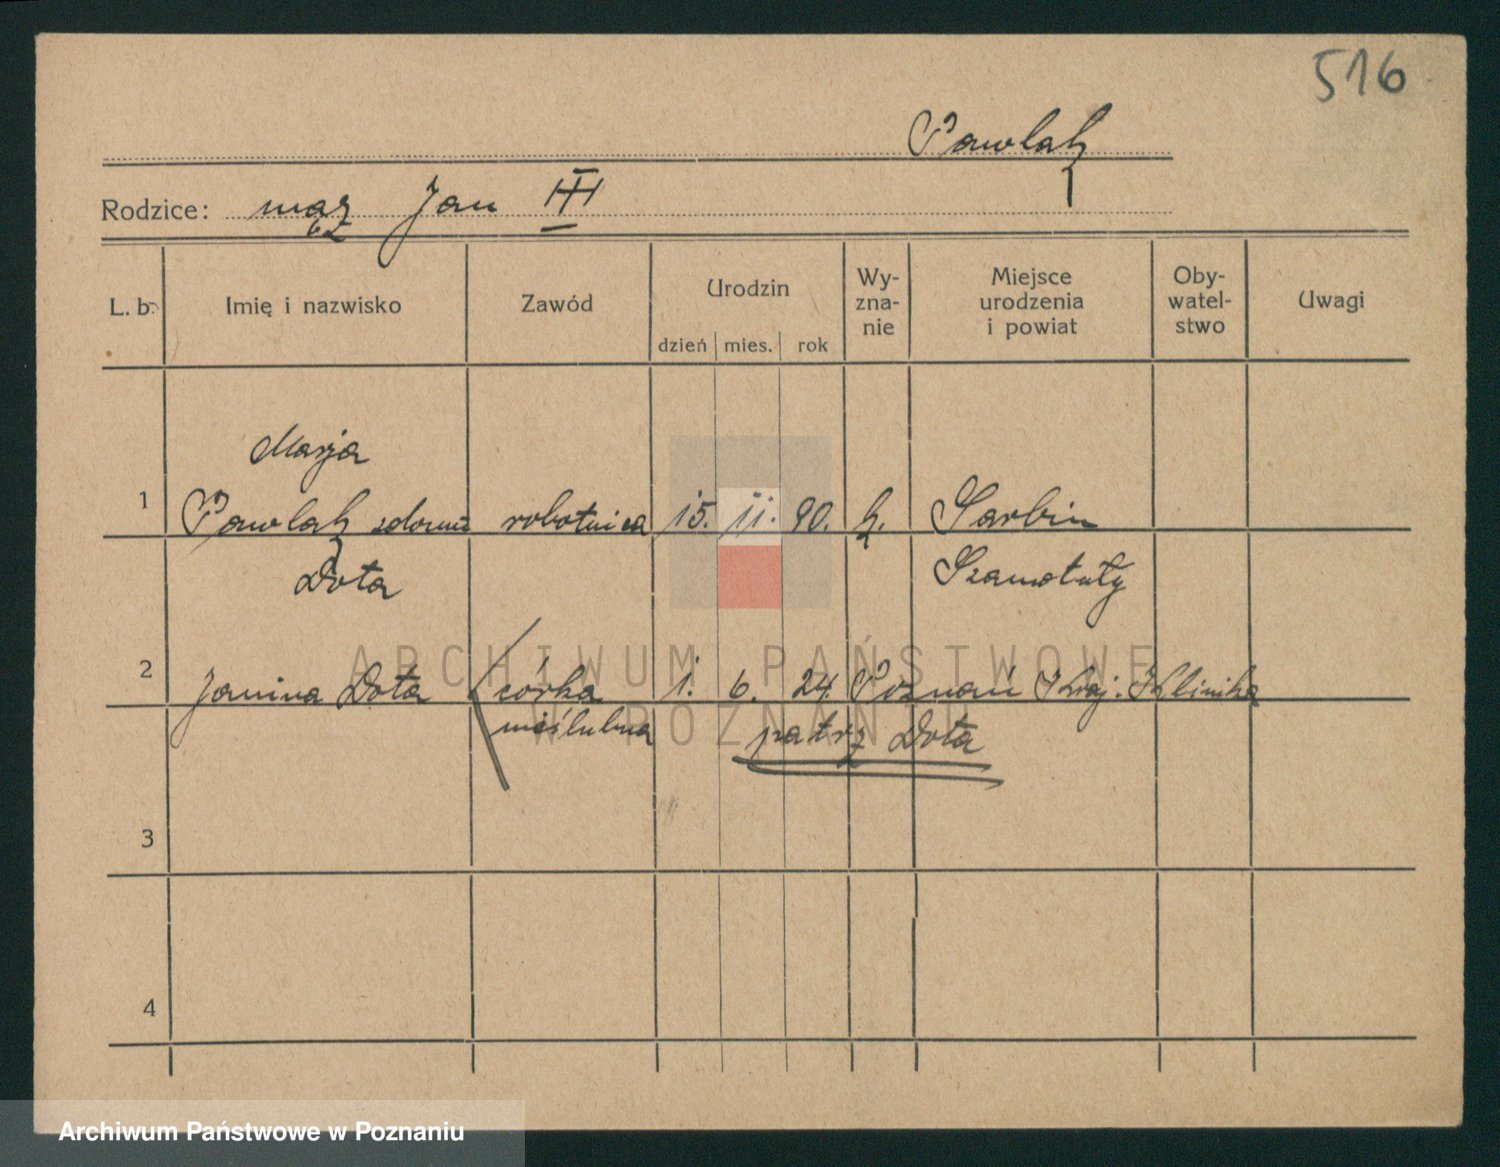 516
Pawlak
Rodzice: mąż Jan III
L. b. Imię i nazwisko Zawód Urodzin dzień mies. rok Wy-zna-nie Miejsce urodzenia i powiat Oby-watel-stwo Uwagi
Marja
1 Pawlak zdomu robotnica 15. 11. 90. k. Sarbin
Dota Szamotuły
2 Janina Dota córka 1. 6. 24. Poznań Kraj. Klinika
nieślubna patrz Dota
3
4
ARCHIWUM PAŃSTWOWE
W POZNANIU
Archiwum Państwowe w Poznaniu